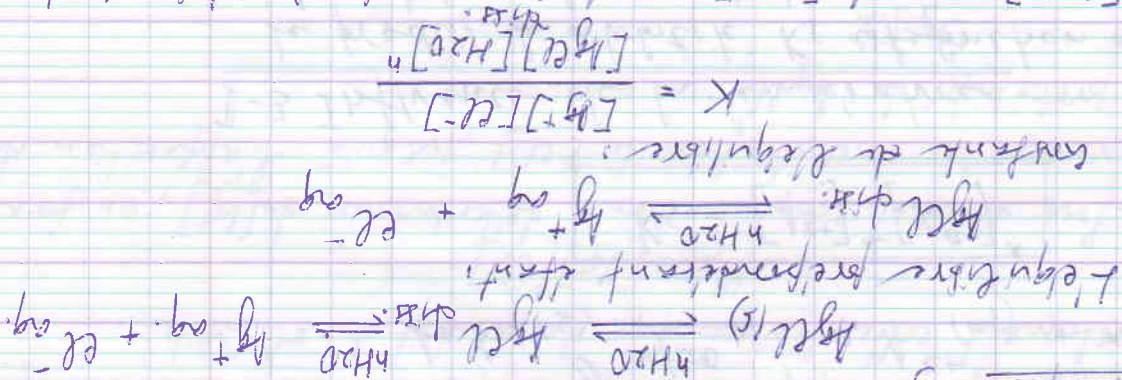 AgCl(s) ⇌ nH2O AgCl diss. ⇌ nH2O Ag+ aq. + Cl- aq.
L'équilibre prépondérant étant :
AgCl diss. ⇌ nH2O Ag+ aq + Cl- aq
Constante de l'équilibre :
K = [Ag+][Cl-] / [AgCl]diss.[H2O]n